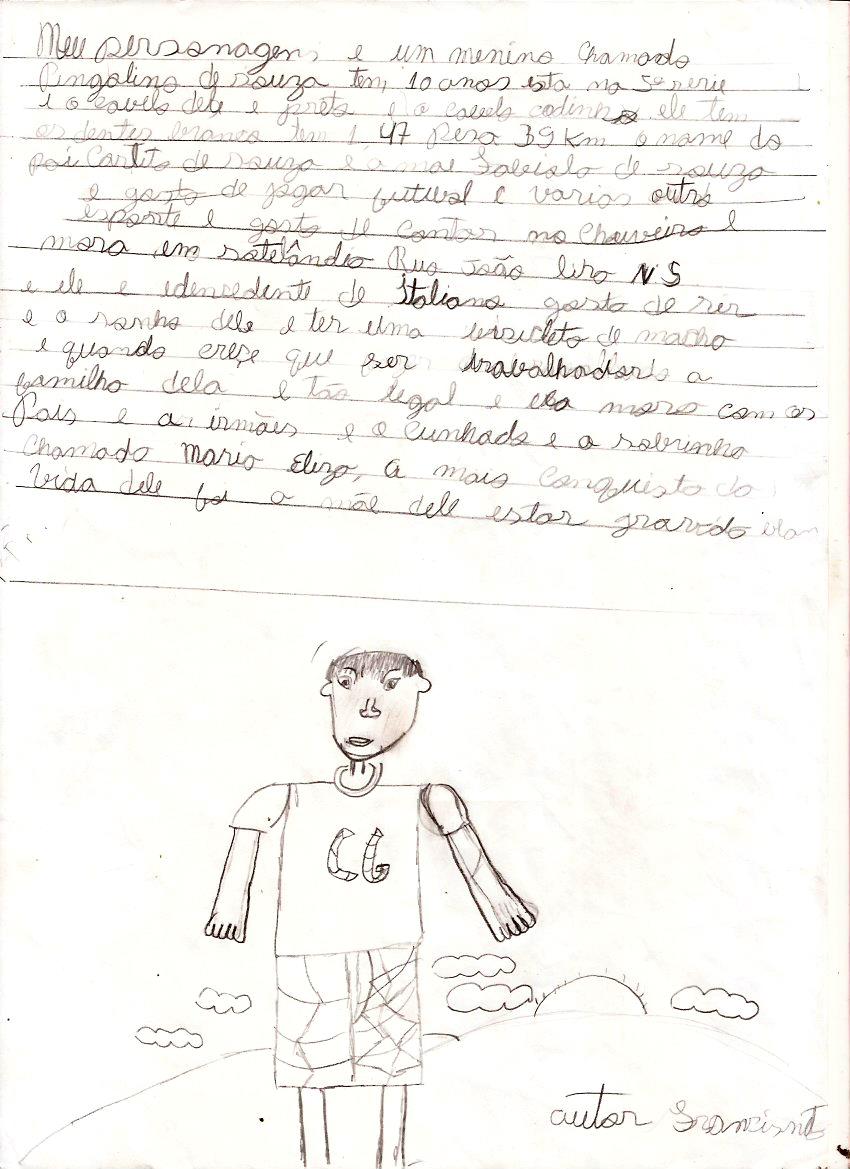 Meu personagens e um menino chamado
Pingolino de souza, tem, 10 anos esta na 5ª serie
e o cavelo dele e preto e o cavelo codinho ele tem
os dentes branco tem 1 47 pesa 39 Km o nome do
pai Carlito de souza e a mae Fabiola de souza
e gosta de jogar futuval e varios outro
esporte e gosta de cantar no chuveiro e
mora em satelândia Rua João lira N S
e ele e idencedente de Italiano gosta de ser
e o sonho dele e ter uma de macho
e quando creçe que ser trabalhador a
familha dela e tão legal e ela mora com os
Pais e a irmães e o Cunhado e o sobrinho
chamado Mario Elizo, a mais conquista da
Vida dele foi a mãe dele estar gravida
CG
autor